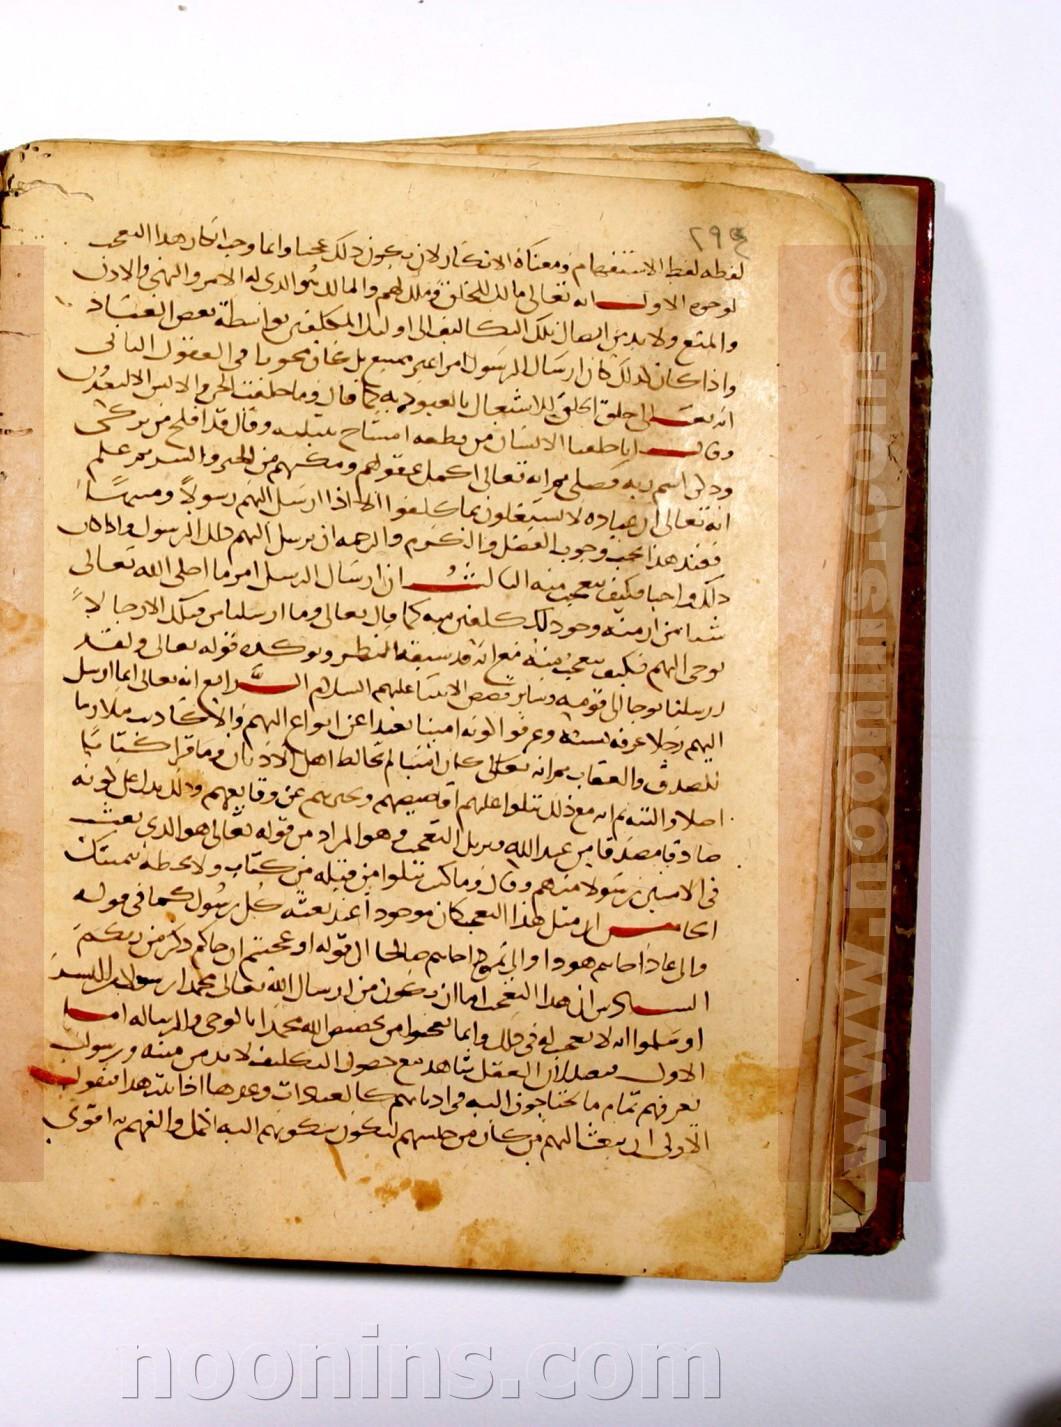 ٢٩٤
لفظه لفظ الاستفهام ومعناه الانكار لان يكون ذلك عجبا وانما وجب انكار هذا التعجب
لوجوه الاول انه تعالى مالك الخلق وملك لهم والمالك هو الذي له الامر والنهي والاذن
والمنع ولا بد من ايصال تلك التكاليف الى اوليك المكلفين بواسطة بعض العباد
واذا كان كذلك كان ارسال الرسول امرا غير ممتنع بل كان مجوزا في العقول الثاني
انه تعالى خلق الخلق للاشتغال بالعبودية كما قال وما خلقت الجن والانس الا ليعبدون
وقال انا خلقنا الانسان من نطفه امشاج نبتليه وقال قد افلح من تزكى
وذكر اسم ربه فصلى ثم انه تعالى اكمل عقولهم ومكنهم من الخير والشر ثم علم
انه تعالى ان عباده لا يشتغلون بما كلفوا الا اذا ارسل اليهم رسولا ومنبها
فعند هذا يجب وجوب الفضل والكرم والرحمه ان يرسل اليهم ذلك الرسول واذا كان
ذلك واجبا فكيف يتعجب منه الثالث ان ارسال الرسل امر ما اخلى الله تعالى
شيا من ازمنه وجود المكلفين منه كما قال تعالى وما ارسلنا من قبلك الا رجالا
نوحي اليهم فكيف يتعجب منه مع انه قد سبقه النظير ويوكده قوله تعالى ولقد
ارسلنا نوحا الى قومه وساير قصص الانبيا عليهم السلام الرابع انه تعالى انما ارسل
اليهم رجلا عرفوا نسبه وعرفوا كونه امينا بعيدا عن انواع التهم والاكاذيب ملازما
للصدق والعفاف ثم انه تعالى كان اميا لم يخالط اهل الاديان وما قرا كتابا
اصلا والبتة ثم انه مع ذلك تتلوا عليهم اقاصيصهم ويخبرهم عن وقايعهم وذلك يدل على كونه
صادقا مصدقا من عند الله ويزيل التعجب وهو المراد من قوله تعالى هو الذي بعث
في الاميين رسولا منهم وقال وما كنت تتلوا من قبله من كتاب ولا تخطه بيمينك
الخامس ان مثل هذا التعجب كان موجودا عند بعثه كل رسول كما في قوله
والى عاد اخاهم هودا والى ثمود اخاهم صالحا الى قوله اوعجبتم ان جاكم ذكر من ربكم
السادس ان هذا التعجب اما ان يكون من ارسال الله تعالى رسولا من البشر
او سلموا انه لا تعجب في ذلك وانما تعجبوا من تخصيص الله محمدا بالوحي والرساله اما
الاول فبعيد لان العقل شاهد مع حصول التكليف لا بد من منبه ورسول
يعرفهم تمام ما يحتاجون اليه في اديانهم كالعبادات وغيرها اذا ثبت هذا فنقول
الاولى ان يبعث اليهم من كان من جنسهم ليكون سكونهم اليه اكمل والفهم به اقوى
© www.noonins.com
noonins.com